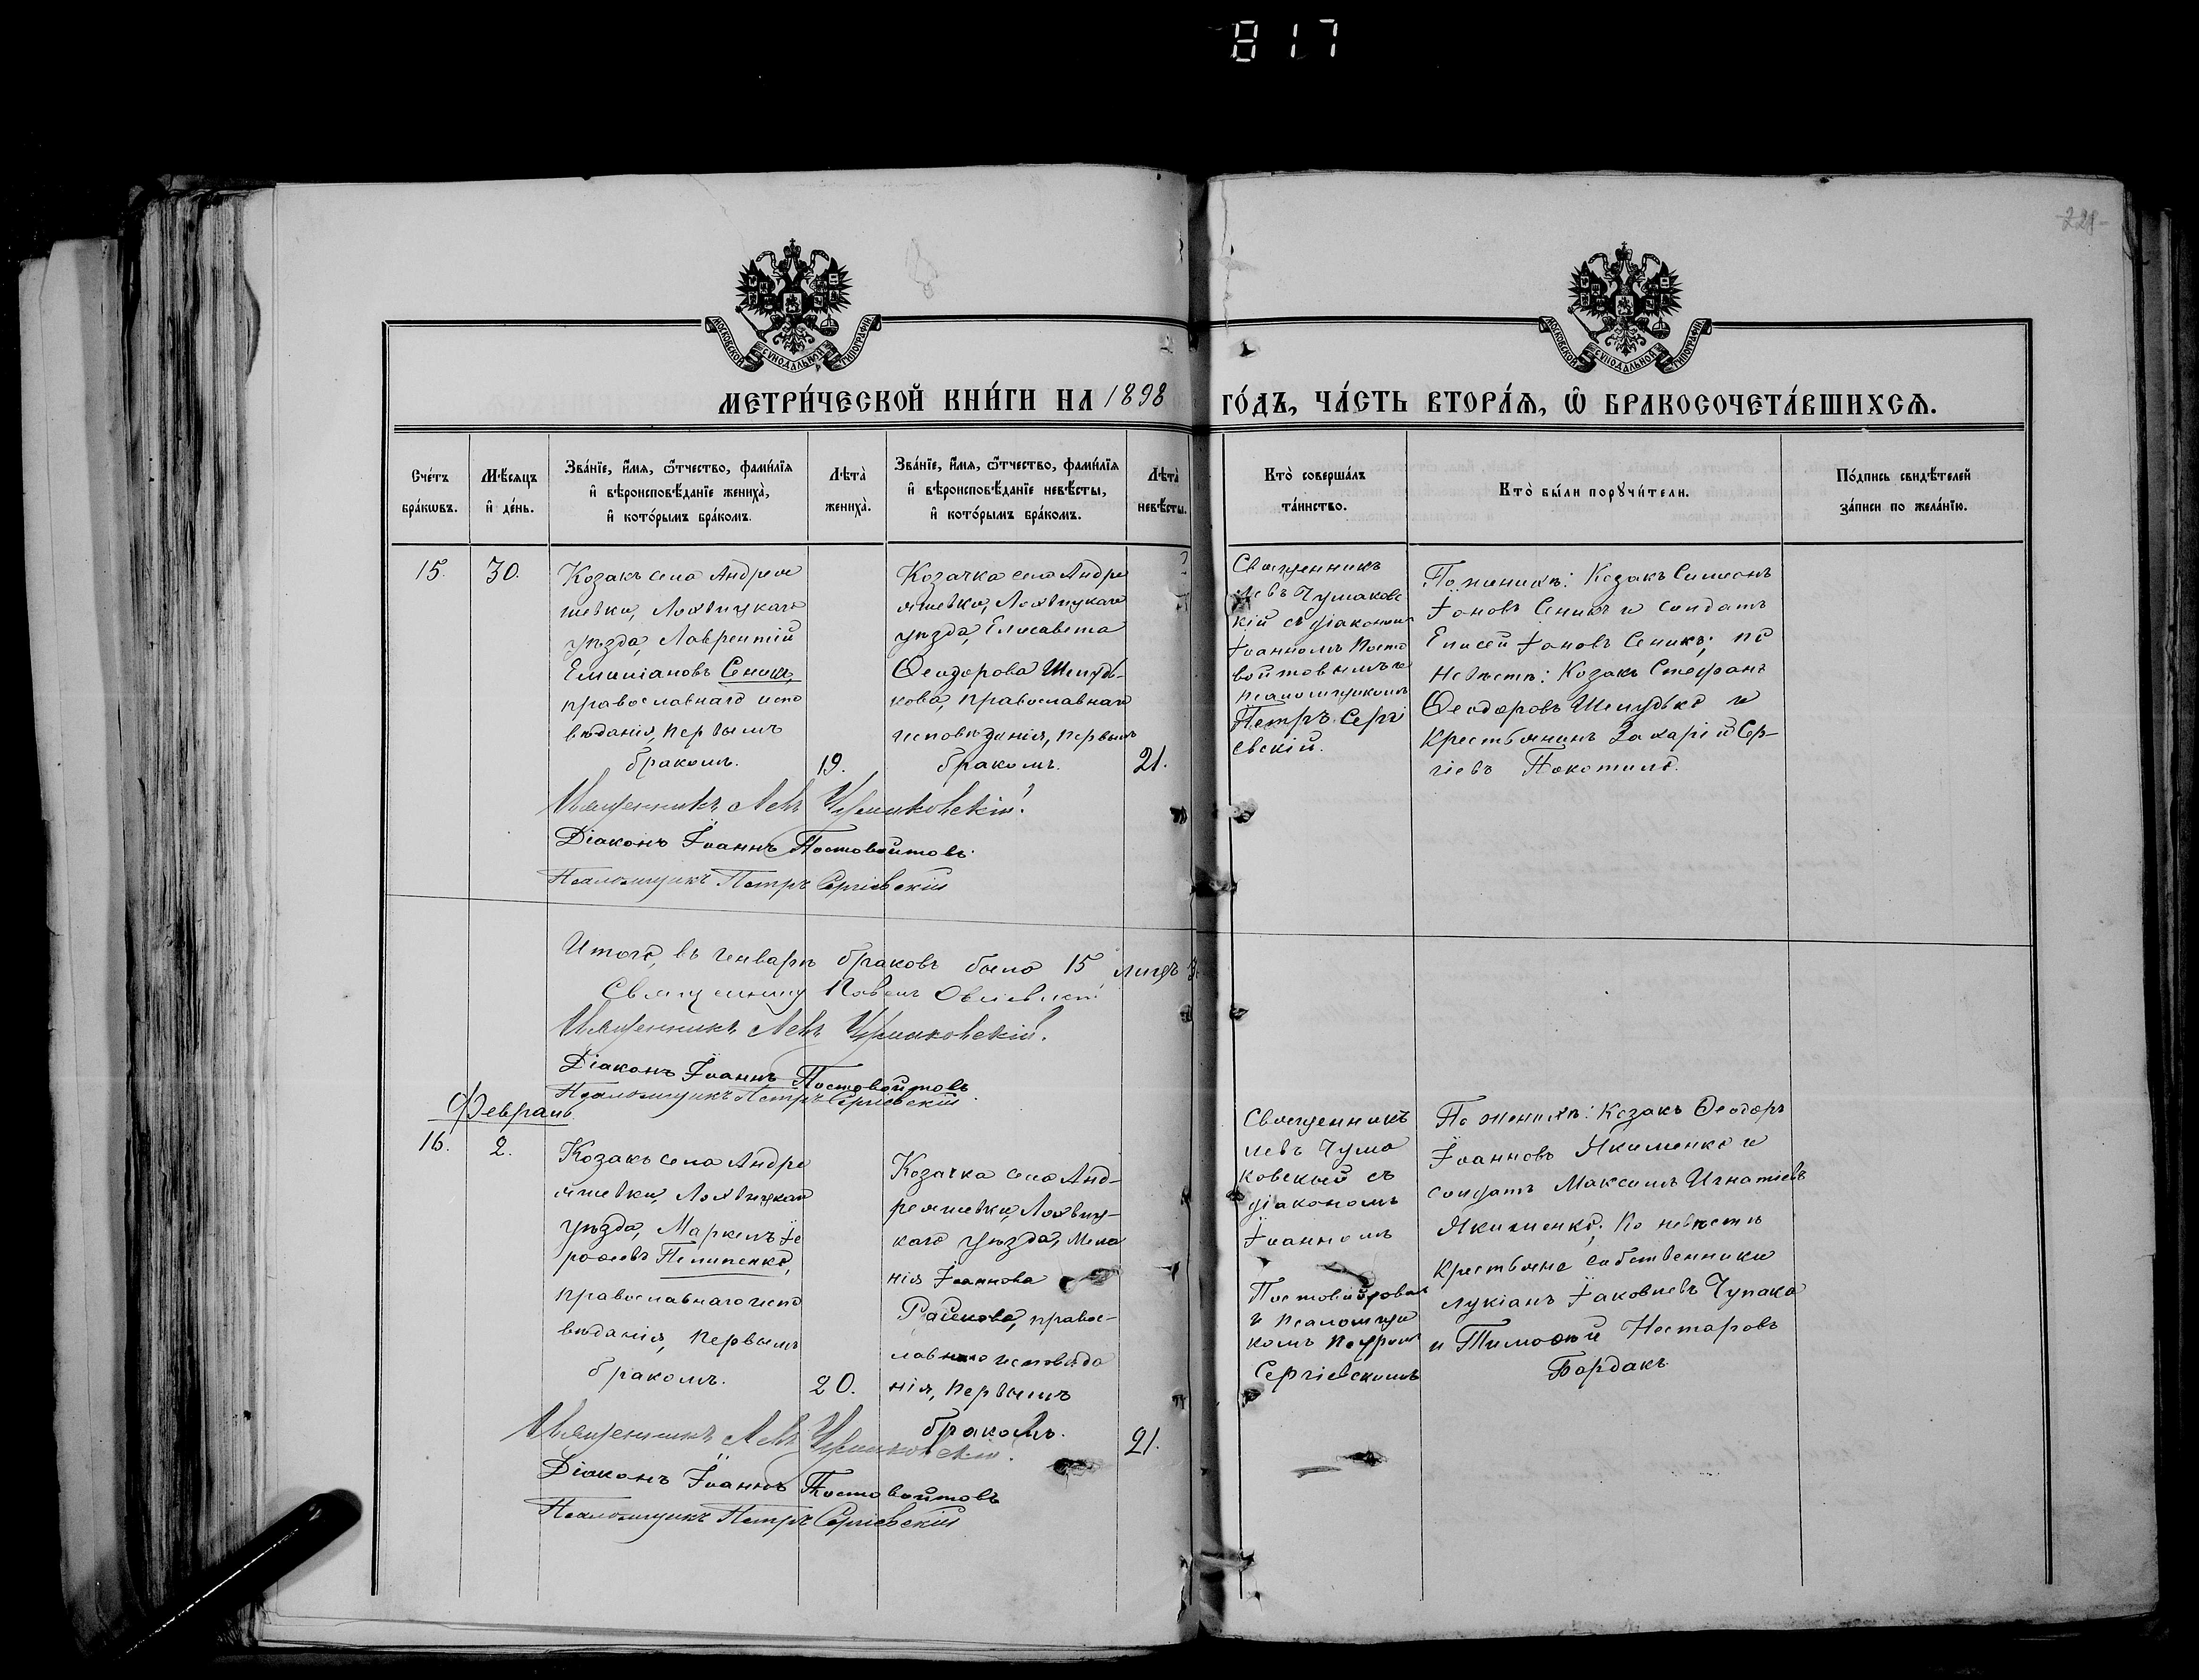 817
-221-
МОСКОВСКОЙ СѴНОДАЛЬНОЙ ТИПОГРАФІИ
МОСКОВСКОЙ СѴНОДАЛЬНОЙ ТИПОГРАФІИ
МЕТРИ́ЧЕСКОЙ КНИ́ГИ НА 1898 ГО́ДЪ, ЧА́СТЬ ВТОРА́Я, Ѡ БРАКОСОЧЕТА́ВШИХСЯ.
Сче́тъ
бра́кωвъ.
Мѣ́сяцъ
и҆ де́нь.
Зва́нїе, и҆́мя, ѻ҆́тчество, фами́лїя
и҆ вѣроисповѣ́данїе жениха̀,
и҆ кото́рымъ бра́комъ.
Лѣта̀
жениха̀.
Зва́нїе, и҆́мя, ѻ҆́тчество, фами́лїя
и҆ вѣроисповѣ́данїе невѣ́сты,
и҆ кото́рымъ бра́комъ.
Лѣта̀
невѣ́сты.
Кто̀ соверша́лъ
та́инство.
Кто̀ бы́ли порꙋчи́тели.
По́дпись свидѣ́телей
за́писи по жела́нїю.
15.
30.
Козакъ села Андрея
шевки, Лохвицкаго
уѣзда, Лаврентій
Емиліановъ Сеникъ,
православнаго испо
вѣданія, первымъ
бракомъ.
19.
Козачка села Андре
яшевки, Лохвицкаго
уѣзда, Елисавета
Ѳеодорова Шелудь-
кова, православнаго
исповѣданія, первымъ
бракомъ.
21.
Священникъ
Левъ Чумаковс
кій съ діакономъ
Іоанномъ Посто
войтовымъ и
псаломщикомъ
Петръ Сергі
евскій.
По женихѣ: Козакъ Симеонъ
Іоновъ Сеникъ и солдатъ
Елисей Іоновъ Сеникъ; по
невѣстѣ: Козакъ Стефанъ
Ѳеодоровъ Шелудько и
крестьянинъ Захарій Сер-
гіевъ Покотило.
Священникъ Левъ Чумаковскій.
Діаконъ Іоаннъ Постовойтовъ.
Псаломщикъ Петръ Сергіевскій
Итого, въ генварѣ браковъ было 15 лицъ 3
Священникъ Павелъ
Священникъ Левъ Чумаковскій.
Діаконъ Іоаннъ Постовойтовъ
Псаломщикъ Петръ Сергіевскій.
Февраль
16.
2.
Козакъ села Андре
яшевки, Лохвицкаго
уѣзда, Маркелъ Іе
роѳеевъ Пелипенко,
православнаго испо
вѣданія, первымъ
бракомъ.
20.
Козачка села Анд-
реяшевки, Лохвиц-
каго уѣзда, Мела
нія Іоаннова
Райкова, правос-
лавнаго исповѣда
нія, первымъ
бракомъ.
21.
Священникъ
Левъ Чума
ковский съ
діакономъ
Іоанномъ
Постовойтовым
и псаломщи
комъ Петром
Сергіевскимъ
По женихѣ: Козакъ Ѳеодоръ
Іоанновъ Якименко и
солдатъ Максимъ Игнатіевъ
Якименко; По невѣстѣ
крестьяне собственники
Лукіанъ Іаковлевъ Чупака
и Тимоѳей Несторовъ
Бардакъ.
Священникъ Левъ Чумаковскій.
Діаконъ Іоаннъ Постовойтовъ
Псаломщикъ Петръ Сергіевскій